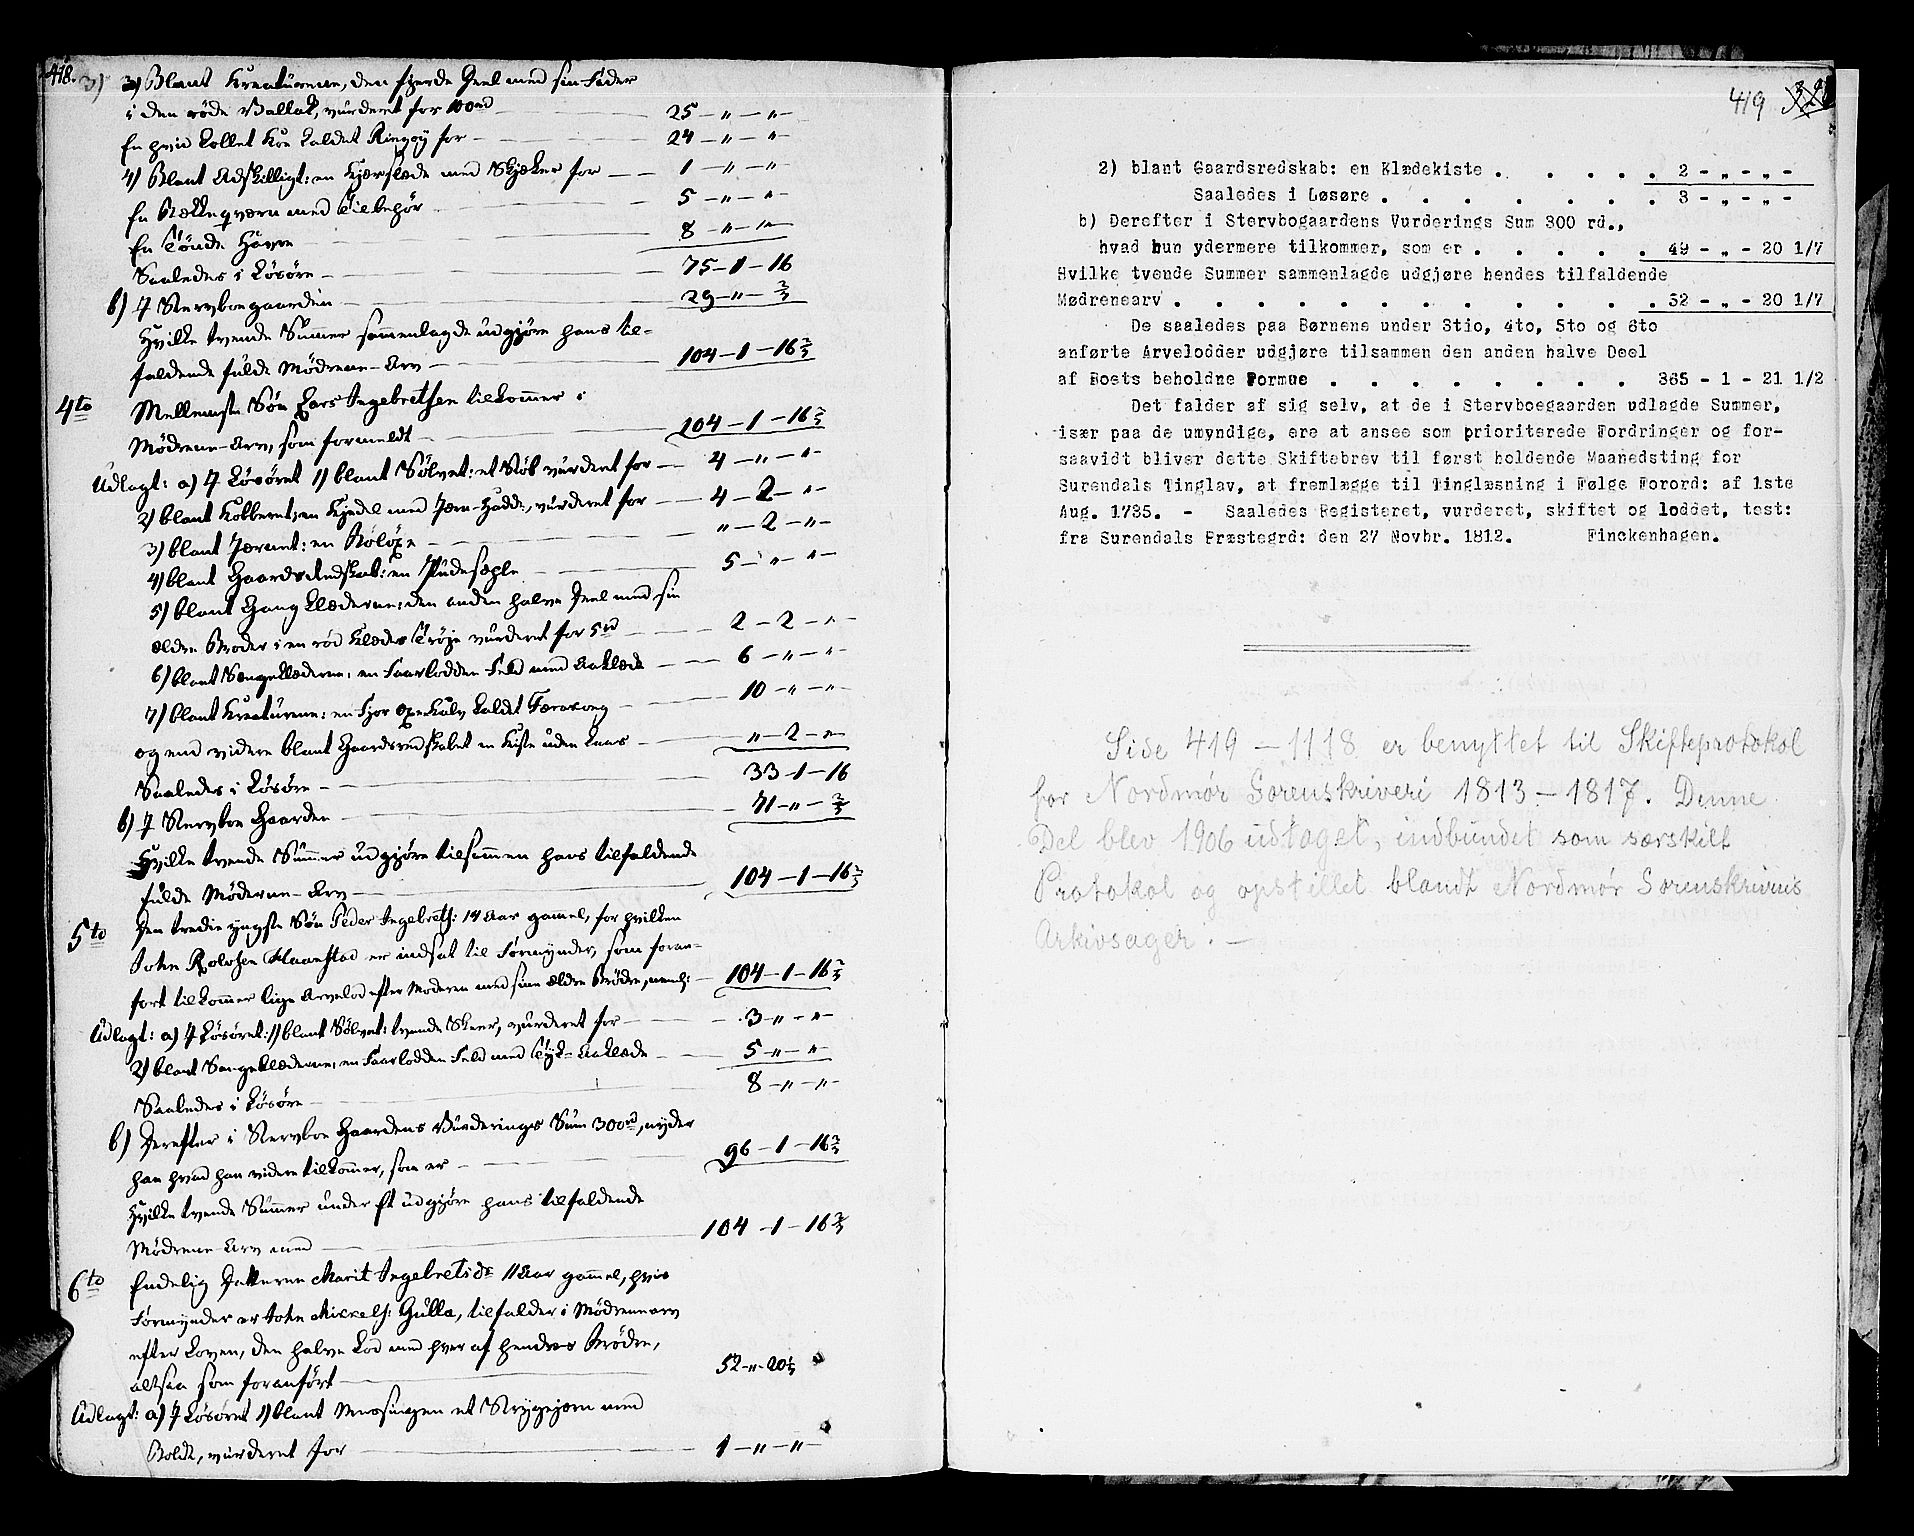 418.
3) 3) Blant Kreaturene, den fjerde Deel med sin Fader
i den röde Vallak, vurderet for 100rd 25 - „ - „ -
En hvid kollet Koe kaldet Ringöy for 24 - „ - „ -
4) Blant Adskilligt: en Kjærslæde med Skjæker for 1 - „ - „ -
En Rækkeqværn med Tilbehör 5 - „ - „ -
En Tönde Havre 8 - „ - „ -
Saaledes i Lösöre 75 - 1 - 16
b) I Stervboegaarden 29 - „ - 2/3
Hvilke tvende Summer sammenlagde udgjöre hans til-
faldende fulde Mödrene-Arv 104 - 1 - 16 2/3
4to Mellemste Sön Lars Ingebretsen tilkommer i
Mödrene-Arv, som formeldt 104 - 1 - 16 2/3
Udlagt: a) I Lösöret 1) blant Sölvet: et Stöb vurderet for 4 - „ - „ -
2) blant Kobberet: en Kjedel med Jern-Hadd:, vurderet for 4 - 2 - „ -
3) blant Jernet: en Bölöxe „ - 2 - „ -
4) blant Gaards Redskab: en 5 - „ - „ -
5) blant Gangklæderne: den anden halve Deel med sin
ældre Broder i en röd Klædes Tröje vurderet for 5rd 2 - 2 - „ -
6) blant Sengeklæderne: en Faarlodden Feld med Aaklæde 6 - „ - „ -
7) blant Kreaturene: en Fjor Oxekalv kaldt 10 - „ - „ -
og end videre blant Gaardsredskabet en Kiste uden Laas „ - 2 - „ -
Saaledes i Lösöre 33 - 1 - 16
b) I Stervboe Gaarden 71 - „ - 2/3
Hvilke tvende Summer udgjöre tilsammen hans tilfaldende
fulde Mödrene-Arv 104 - 1 - 16 2/3
5to Den tredie yngste Sön Peder Ingebrets: 14 Aar gammel, for hvilken
John Rolvsen Haanstad er indsat til Formynder, som foran-
fort tilkommer lige Arvelod efter Moderen med sine ældre Brödre, neml: 104 - 1 - 16 2/3
Udlagt: a) I Lösöret: 1) blant Sölvet: tvende Skeer, vurderet for 3 - „ - „ -
2) blant Sengeklæderne: en Faarlodden Feld med Tyk-Aaklæde 5 - „ - „ -
Saaledes i Lösöre 8 - „ - „ -
b) Derefter i Stervboe Gaardens Vurderings Sum 300rd, nyder
han hvad han videre tilkommer, som er 96 - 1 - 16 2/3
Hvilke tvende Summer under Et udgjöre hans tilfaldende
Mödrene-Arv med 104 - 1 - 16 2/3
6to Endelig Datteren Marit Ingebretsdr 11 Aar gammel, hvis
Formynder er John Mikkels: Gulla, tilfalder i Mödrenearv
efter Loven, den halve Lod med hver af hendes Brödre,
altsaa som foranfört 52 - „ - 20 1/3
Udlagt: a) I Lösöret 1) blant Messingen et Strygejern med
Bolde, vurderet for 1 - „ - „ -
419
2) blant Gaardsredskab: en Klædekiste . . . . . 2 - „ - „ -
Saaledes i Løsøre . . . . . . . . 3 - „ - „ -
b) Derefter i Stervbogaardens Vurderings Sum 300 rd.,
hvad hun ydermere tilkommer, som er . . . . . 49 - „ - 20 1/7
Hvilke tvende Summer sammenlagde udgjøre hendes tilfaldende
Mødrenearv . . . . . . . . . . . . . 52 - „ - 20 1/7
De saaledes paa Børnene under 3tio, 4to, 5to og 6to
anførte Arvelodder udgjøre tilsammen den anden halve Deel
af Boets beholdne Formue . . . . . . . . 365 - 1 - 21 1/2
Det falder af sig selv, at de i Stervboegaarden udlagde Summer,
især paa de umyndige, ere at ansee som prioriterede Fordringer og for-
saavidt bliver dette Skiftebrev til først holdende Maanedsting for
Surendals Tinglav, at fremlægge til Tinglæsning i Følge Forord: af 1ste
Aug. 1735. - Saaledes Registeret, vurderet, skiftet og loddet, test:
fra Surendals Præstegrd: den 27 Novbr. 1812. Finckenhagen.
Side 419 - 1118 er benyttet til Skifteprotokol
for Nordmør Sorenskriveri 1813 - 1817. Denne
Del blev 1906 udtaget, indbundet som særskilt
Protokol og opstillet blandt Nordmør Sorenskriveris
Arkivsager. -